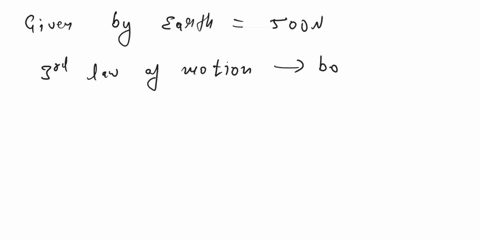 Given by Earth = 500N
3rd law of motion → bo